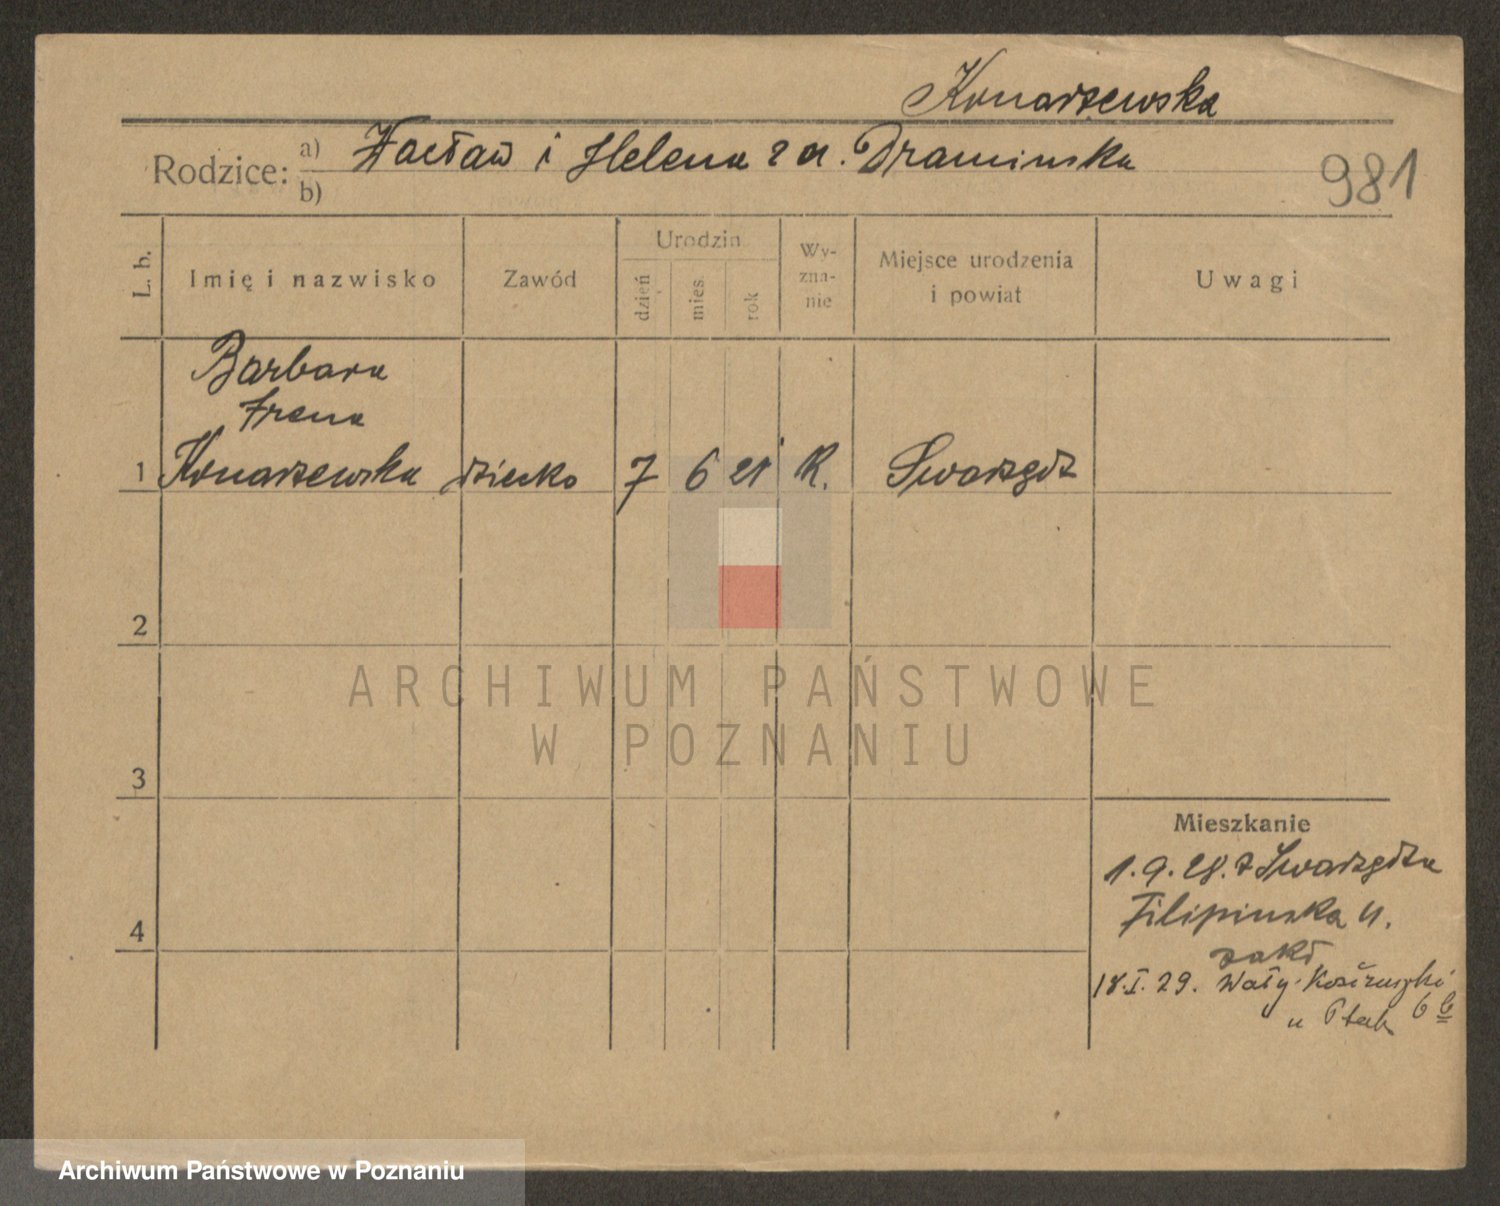 Konarzewska
Rodzice: a) Wacław i Helena z d. Dramińska
b)
981
L. b. Imię i nazwisko Zawód Urodzin dzień mies. rok Wy-zna-nie Miejsce urodzenia i powiat Uwagi
Barbara
Irena
1 Konarzewska dziecko 7 6 21 R. Swarzędz
2
3
4
ARCHIWUM PAŃSTWOWE
W POZNANIU
Mieszkanie
1.9.28. z Swarzędza
Filipińska 11.
zakł
18.I.29. Wały Kościuszki
6 b
u Ptak
Archiwum Państwowe w Poznaniu